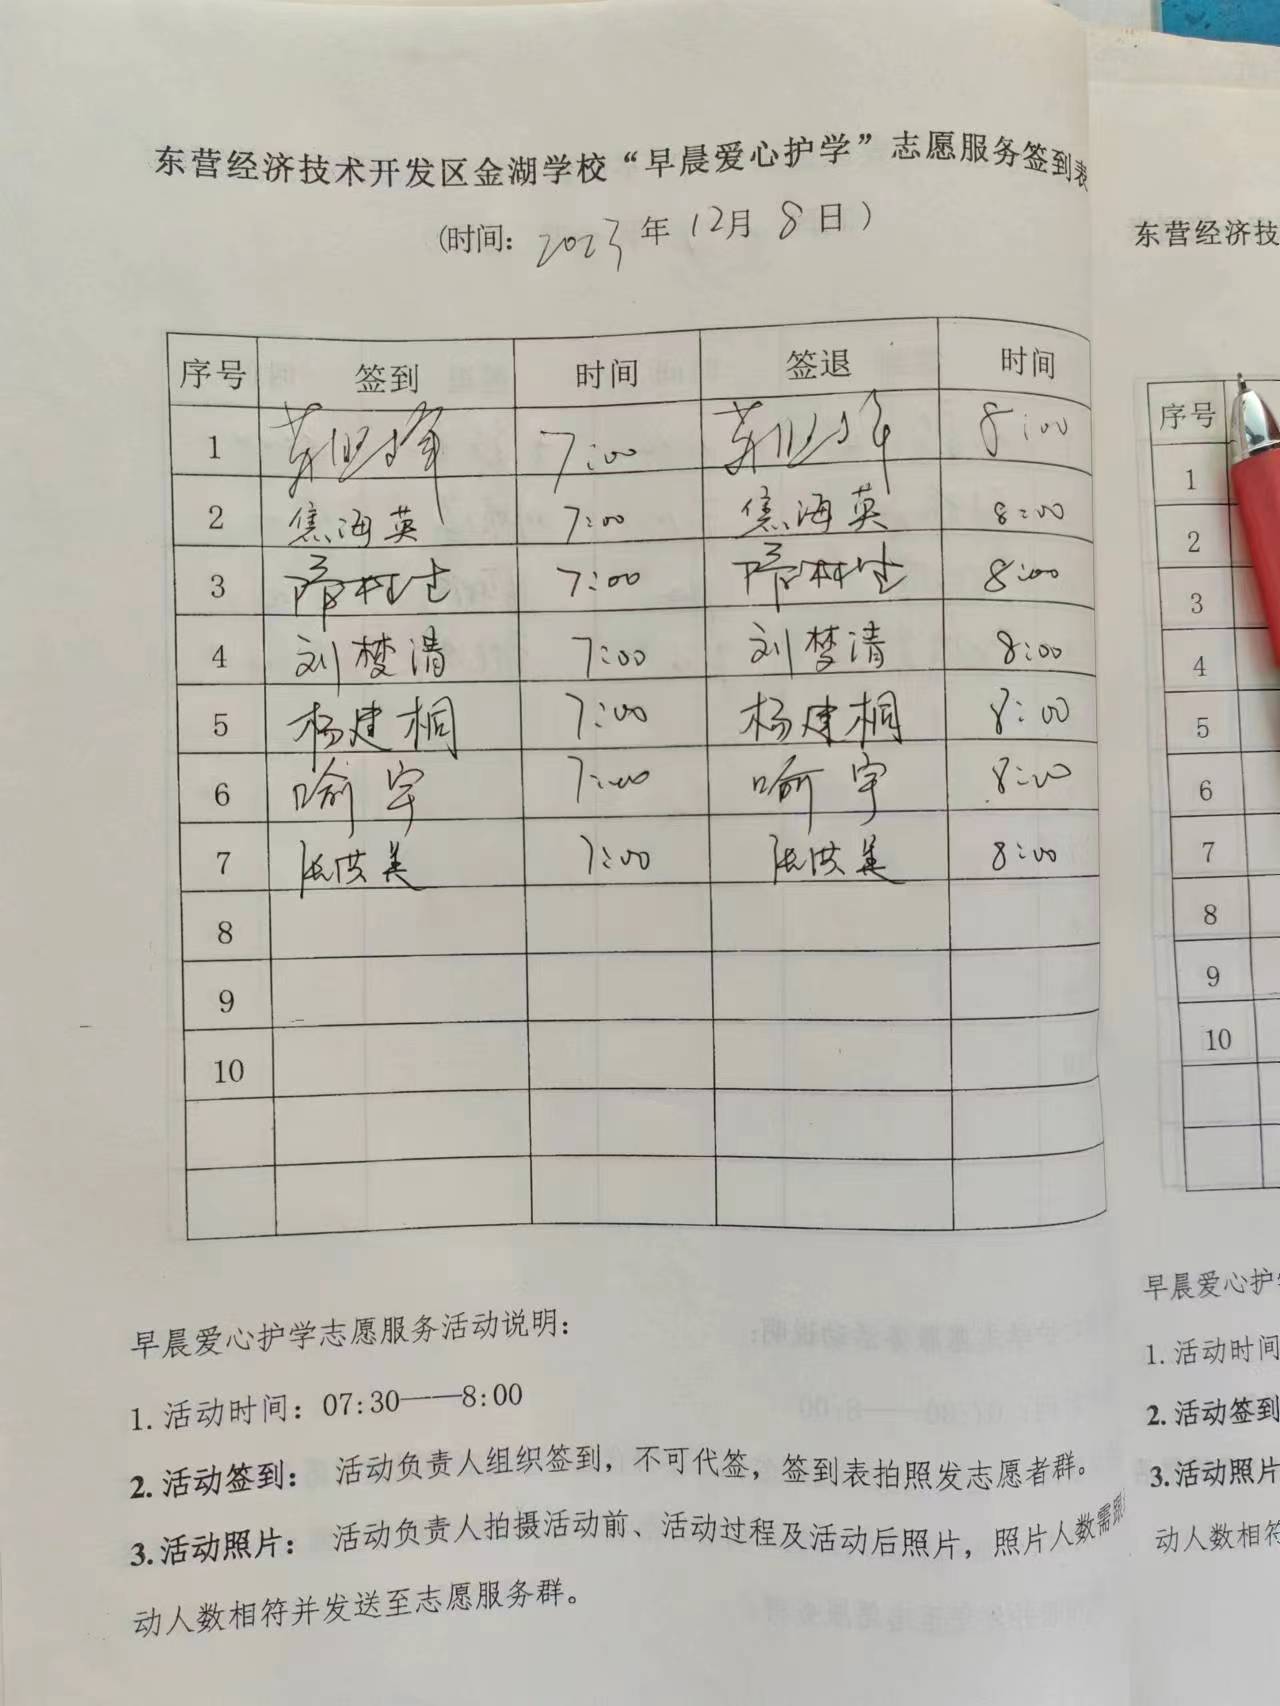 东营经济技术开发区金湖学校“早晨爱心护学”志愿服务签到表
(时间: 2023年12月8日)
序号 签到 时间 签退 时间
1 7:00 8:00
2 焦海英 7:00 焦海英 8:00
3 7:00 8:00
4 刘梦清 7:00 刘梦清 8:00
5 杨建桐 7:00 杨建桐 8:00
6 喻宇 7:00 喻宇 8:00
7 张洪美 7:00 张洪美 8:00
8
9
10
早晨爱心护学志愿服务活动说明:
1. 活动时间: 07:30——8:00
2. 活动签到: 活动负责人组织签到，不可代签，签到表拍照发志愿者群。
3. 活动照片: 活动负责人拍摄活动前、活动过程及活动后照片，照片人数需跟
动人数相符并发送至志愿服务群。
东营经济技
序号
1
2
3
4
5
6
7
8
9
10
早晨爱心护
1. 活动时间
2. 活动签到
3. 活动照片
动人数相符